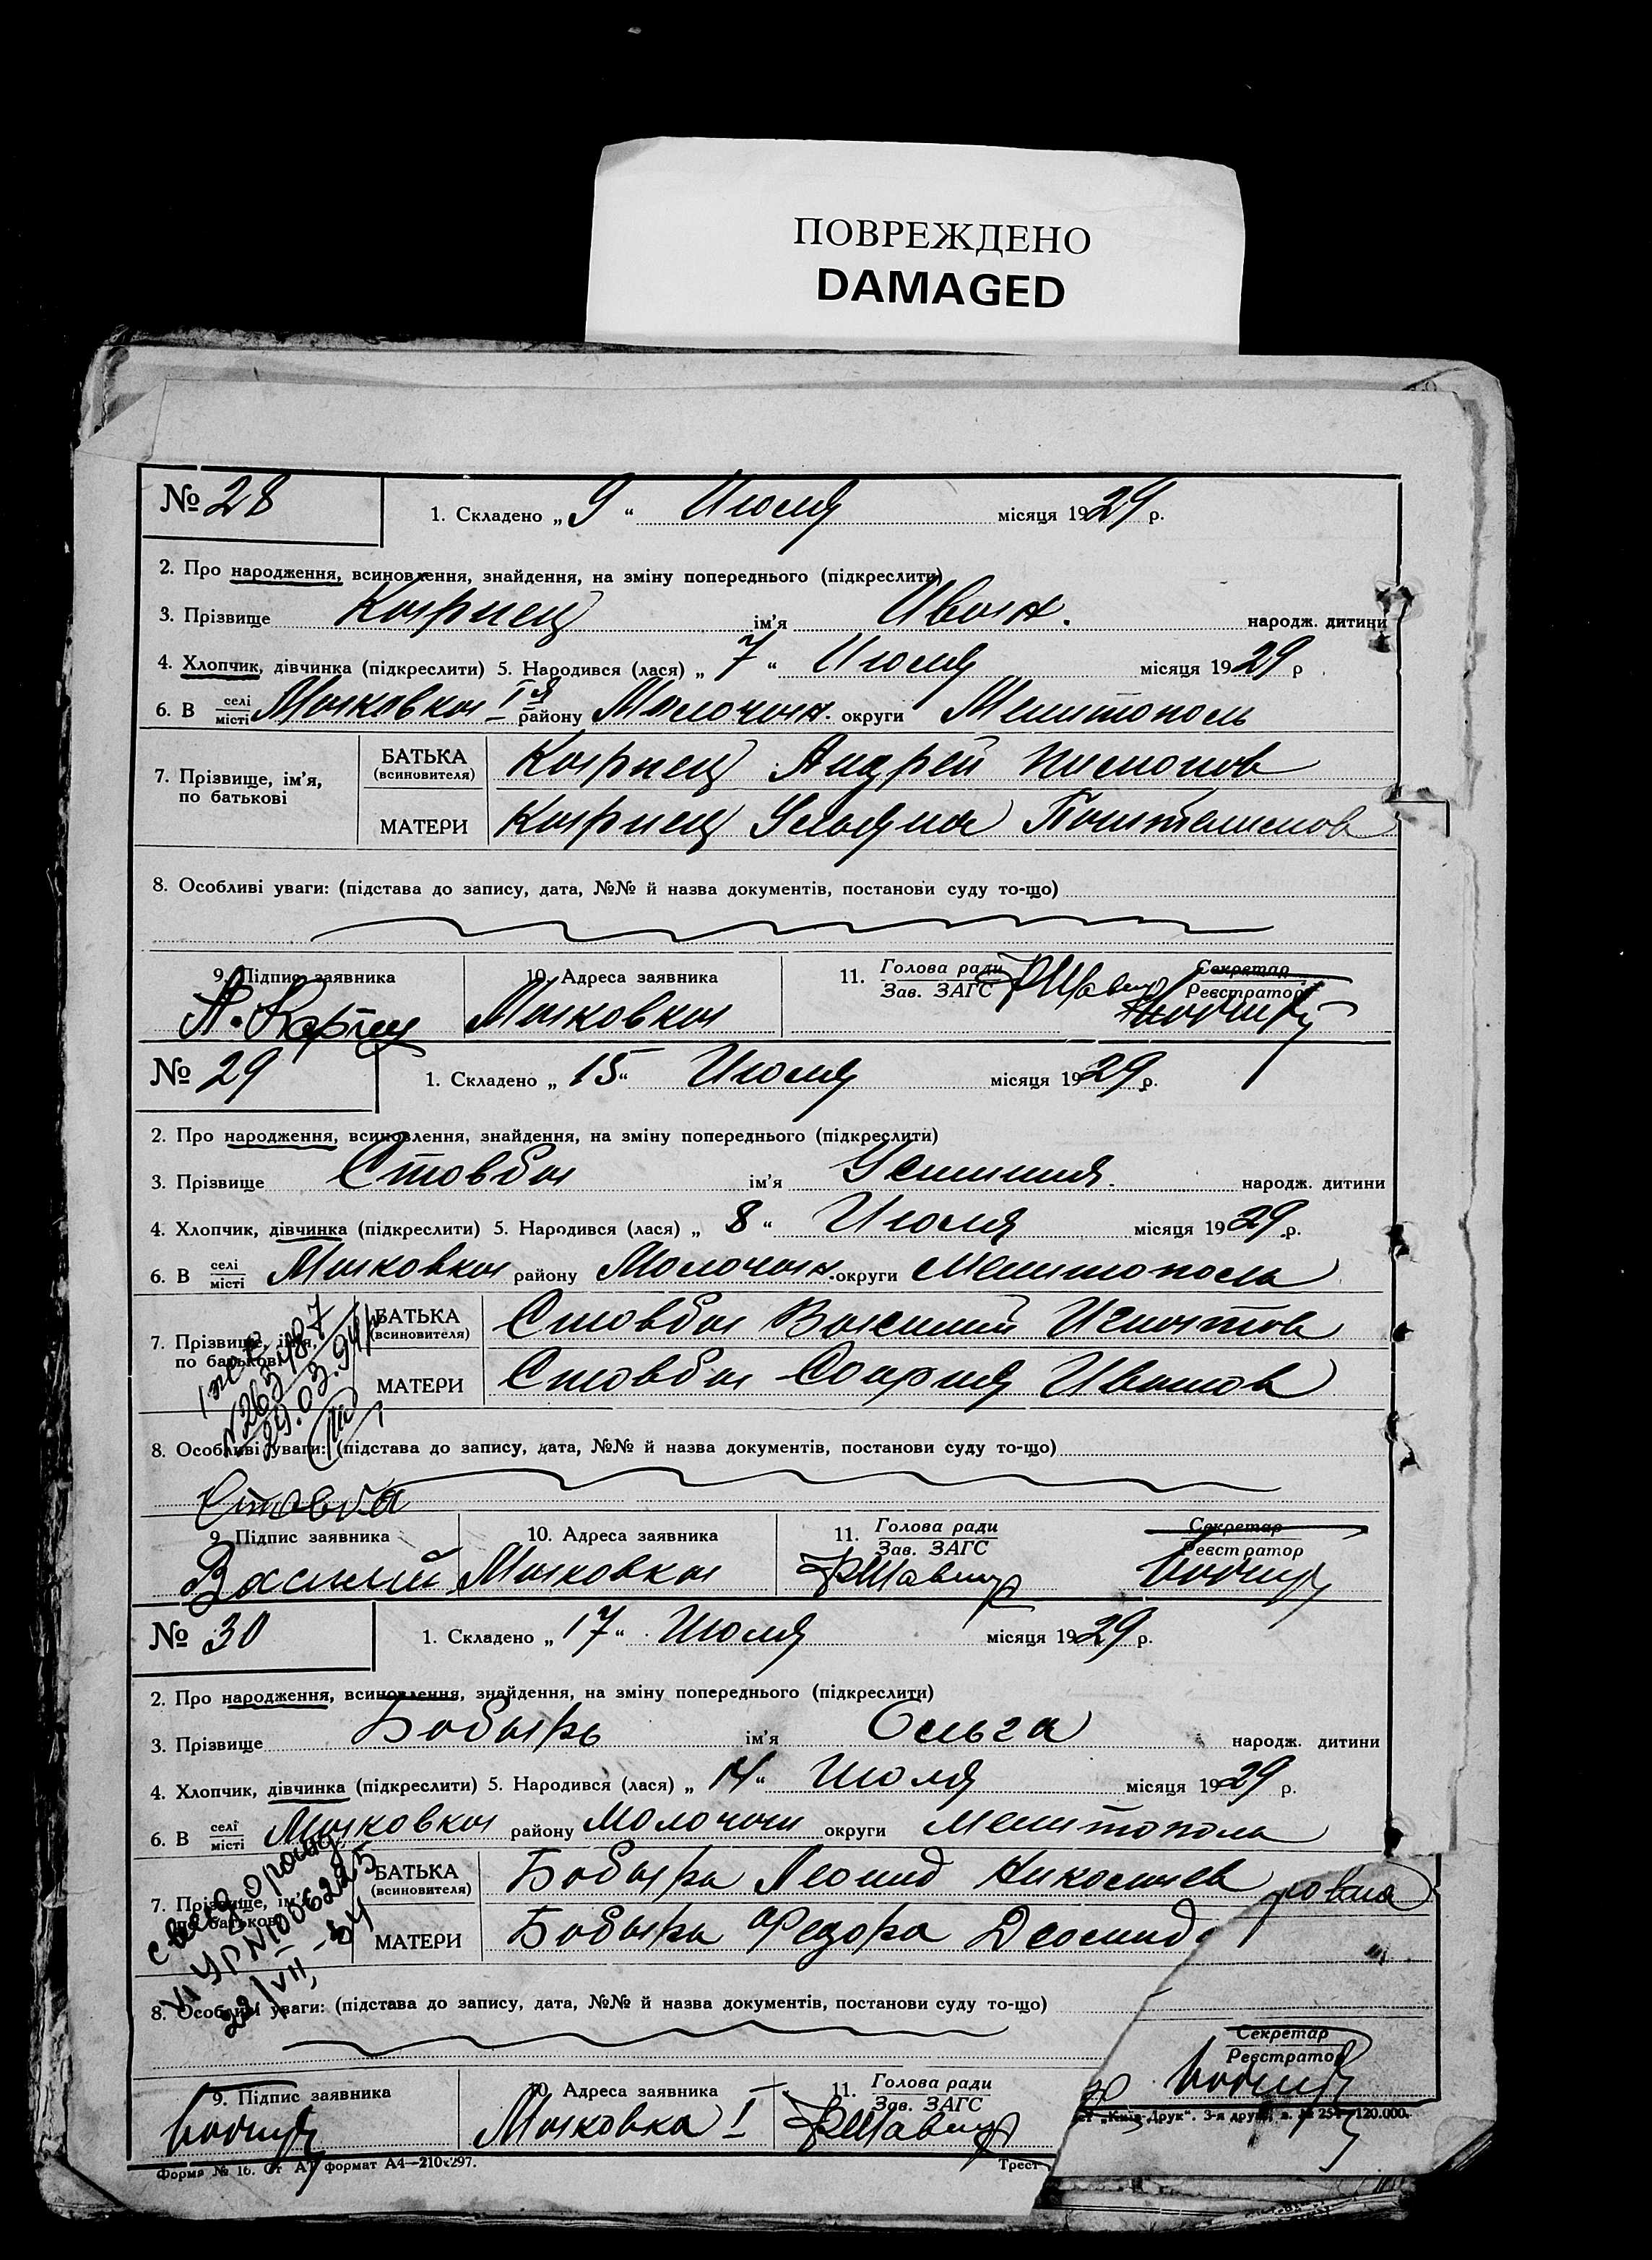 ПОВРЕЖДЕНО
DAMAGED
№ 28 1. Складено „ 9 “ Июля місяця 1929 р.
2. Про народження, всиновлення, знайдення, на зміну попереднього (підкреслити)
3. Прізвище Карпец ім'я Иван. народж. дитини
4. Хлопчик, дівчинка (підкреслити) 5. Народився (лася) „ 7 “ Июля місяця 1929 р
6. В селі місті Мачковка I я району Молочан. округи Мелитополь
7. Прізвище, ім'я, по батькові
БАТЬКА (всиновителя) Карпец Андрей
МАТЕРИ Карпец Ульяна
8. Особливі уваги: (підстава до запису, дата, №№ й назва документів, постанови суду то-що)
9. Підпис заявника 10. Адреса заявника 11. Голова ради Зав. ЗАГС Секретар Реєстратор
А. Карпец Мачковка
№ 29 1. Складено „ 15 “ Июля місяця 1929 р.
2. Про народження, всиновлення, знайдення, на зміну попереднього (підкреслити)
3. Прізвище Стовба ім'я народж. дитини
4. Хлопчик, дівчинка (підкреслити) 5. Народився (лася) „ 8 “ Июля місяця 1929 р.
6. В селі місті Мачковка району Молочан. округи Мелитополь
7. Прізвище, ім'я, по батькові
БАТЬКА (всиновителя) Стовба Василий Игнатов
МАТЕРИ Стовба София Иванов
29.03.94
8. Особливі уваги: (підстава до запису, дата, №№ й назва документів, постанови суду то-що)
Стовба
9. Підпис заявника 10. Адреса заявника 11. Голова ради Зав. ЗАГС Секретар Реєстратор
Василий Мачковка
№ 30 1. Складено „ 17 “ Июля місяця 1929 р.
2. Про народження, всиновлення, знайдення, на зміну попереднього (підкреслити)
3. Прізвище Бобырь ім'я Ольга народж. дитини
4. Хлопчик, дівчинка (підкреслити) 5. Народився (лася) „ 14 “ Июля місяця 1929 р.
6. В селі місті Мачковка району Молочан округи Мелитополь
7. Прізвище, ім'я, по батькові
БАТЬКА (всиновителя) Бобырь Леонид Николаев
МАТЕРИ Бобырь Федора
VI УР № 1006225
22/VII-84
8. Особливі уваги: (підстава до запису, дата, №№ й назва документів, постанови суду то-що)
9. Підпис заявника 10. Адреса заявника 11. Голова ради Зав. ЗАГС Секретар Реєстратор
Мачковка I
Форма № 16. Ст АТ формат А4—210х297. Трест „Київ-Друк“. 3-я друк. з. № 254—120.000.